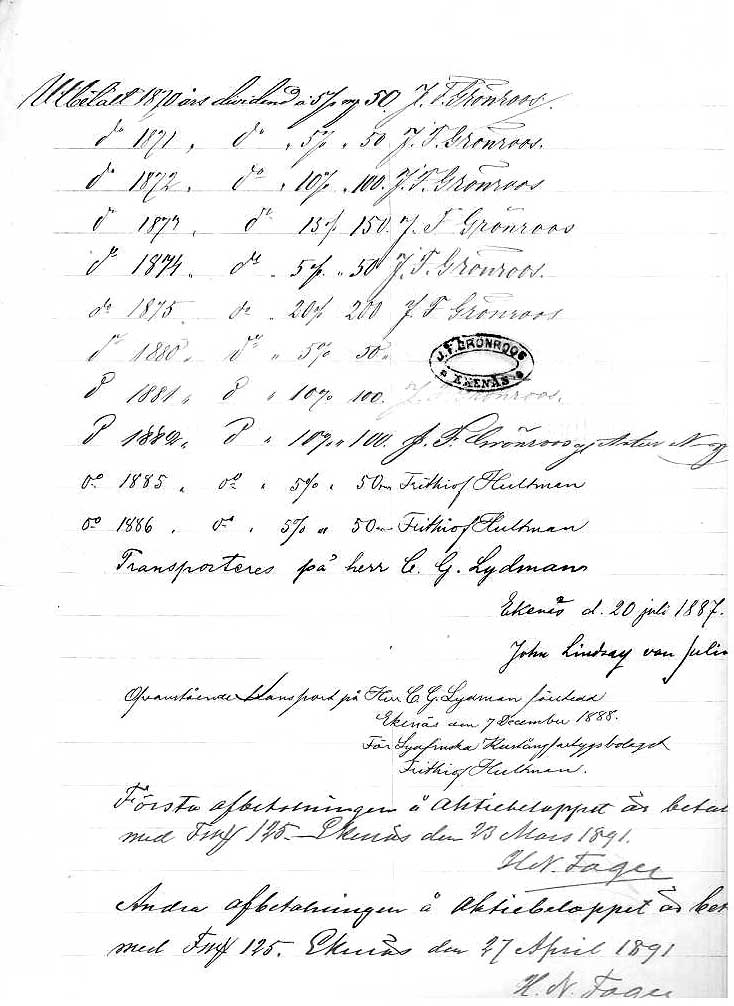 Utbetalt 1870 års dividend á 5% mg 50. J. F. Grönroos.
do 1871 „ do „ 5% „ 50 J. F. Grönroos.
do 1872 „ do „ 10% „ 100. J. F. Grönroos
do 1873 „ do 15% 150. J. F Grönroos
do 1874 „ do „ 5% „ 50 J. F. Grönroos.
do 1875 do „ 20% 200 J. F Grönroos
do 1880 „ do „ 5% 50 „
J. F. GRÖNROOS
EKENÄS
do 1881 „ do „ 10% 100. J. F. Grönroos.
do 1882 „ do „ 10% „ 100. J. F. Grönroos
do 1885 „ do „ 5% „ 50 Frithiof Hultman
do 1886 „ do „ 5% „ 50 Frithiof Hultman
Transporteres på herr C. G. Lydman
Ekenäs d. 20 juli 1887.
John Lindsay von Julin
Ofvanstående transport på Herr C G. Lydman företedd
Ekenäs den 7 December 1888.
För Sydfinska Kustångfartygsbolaget
Frithiof Hultman.
Första afbetalningen å aktiebeloppet är betal
med Fmk 125. Ekenäs den 23 Mars 1891.
H. N. Fager
Andra afbetalningen å aktiebeloppet är bet
med Fmk 125. Ekenäs den 27 April 1891
H. N. Fager